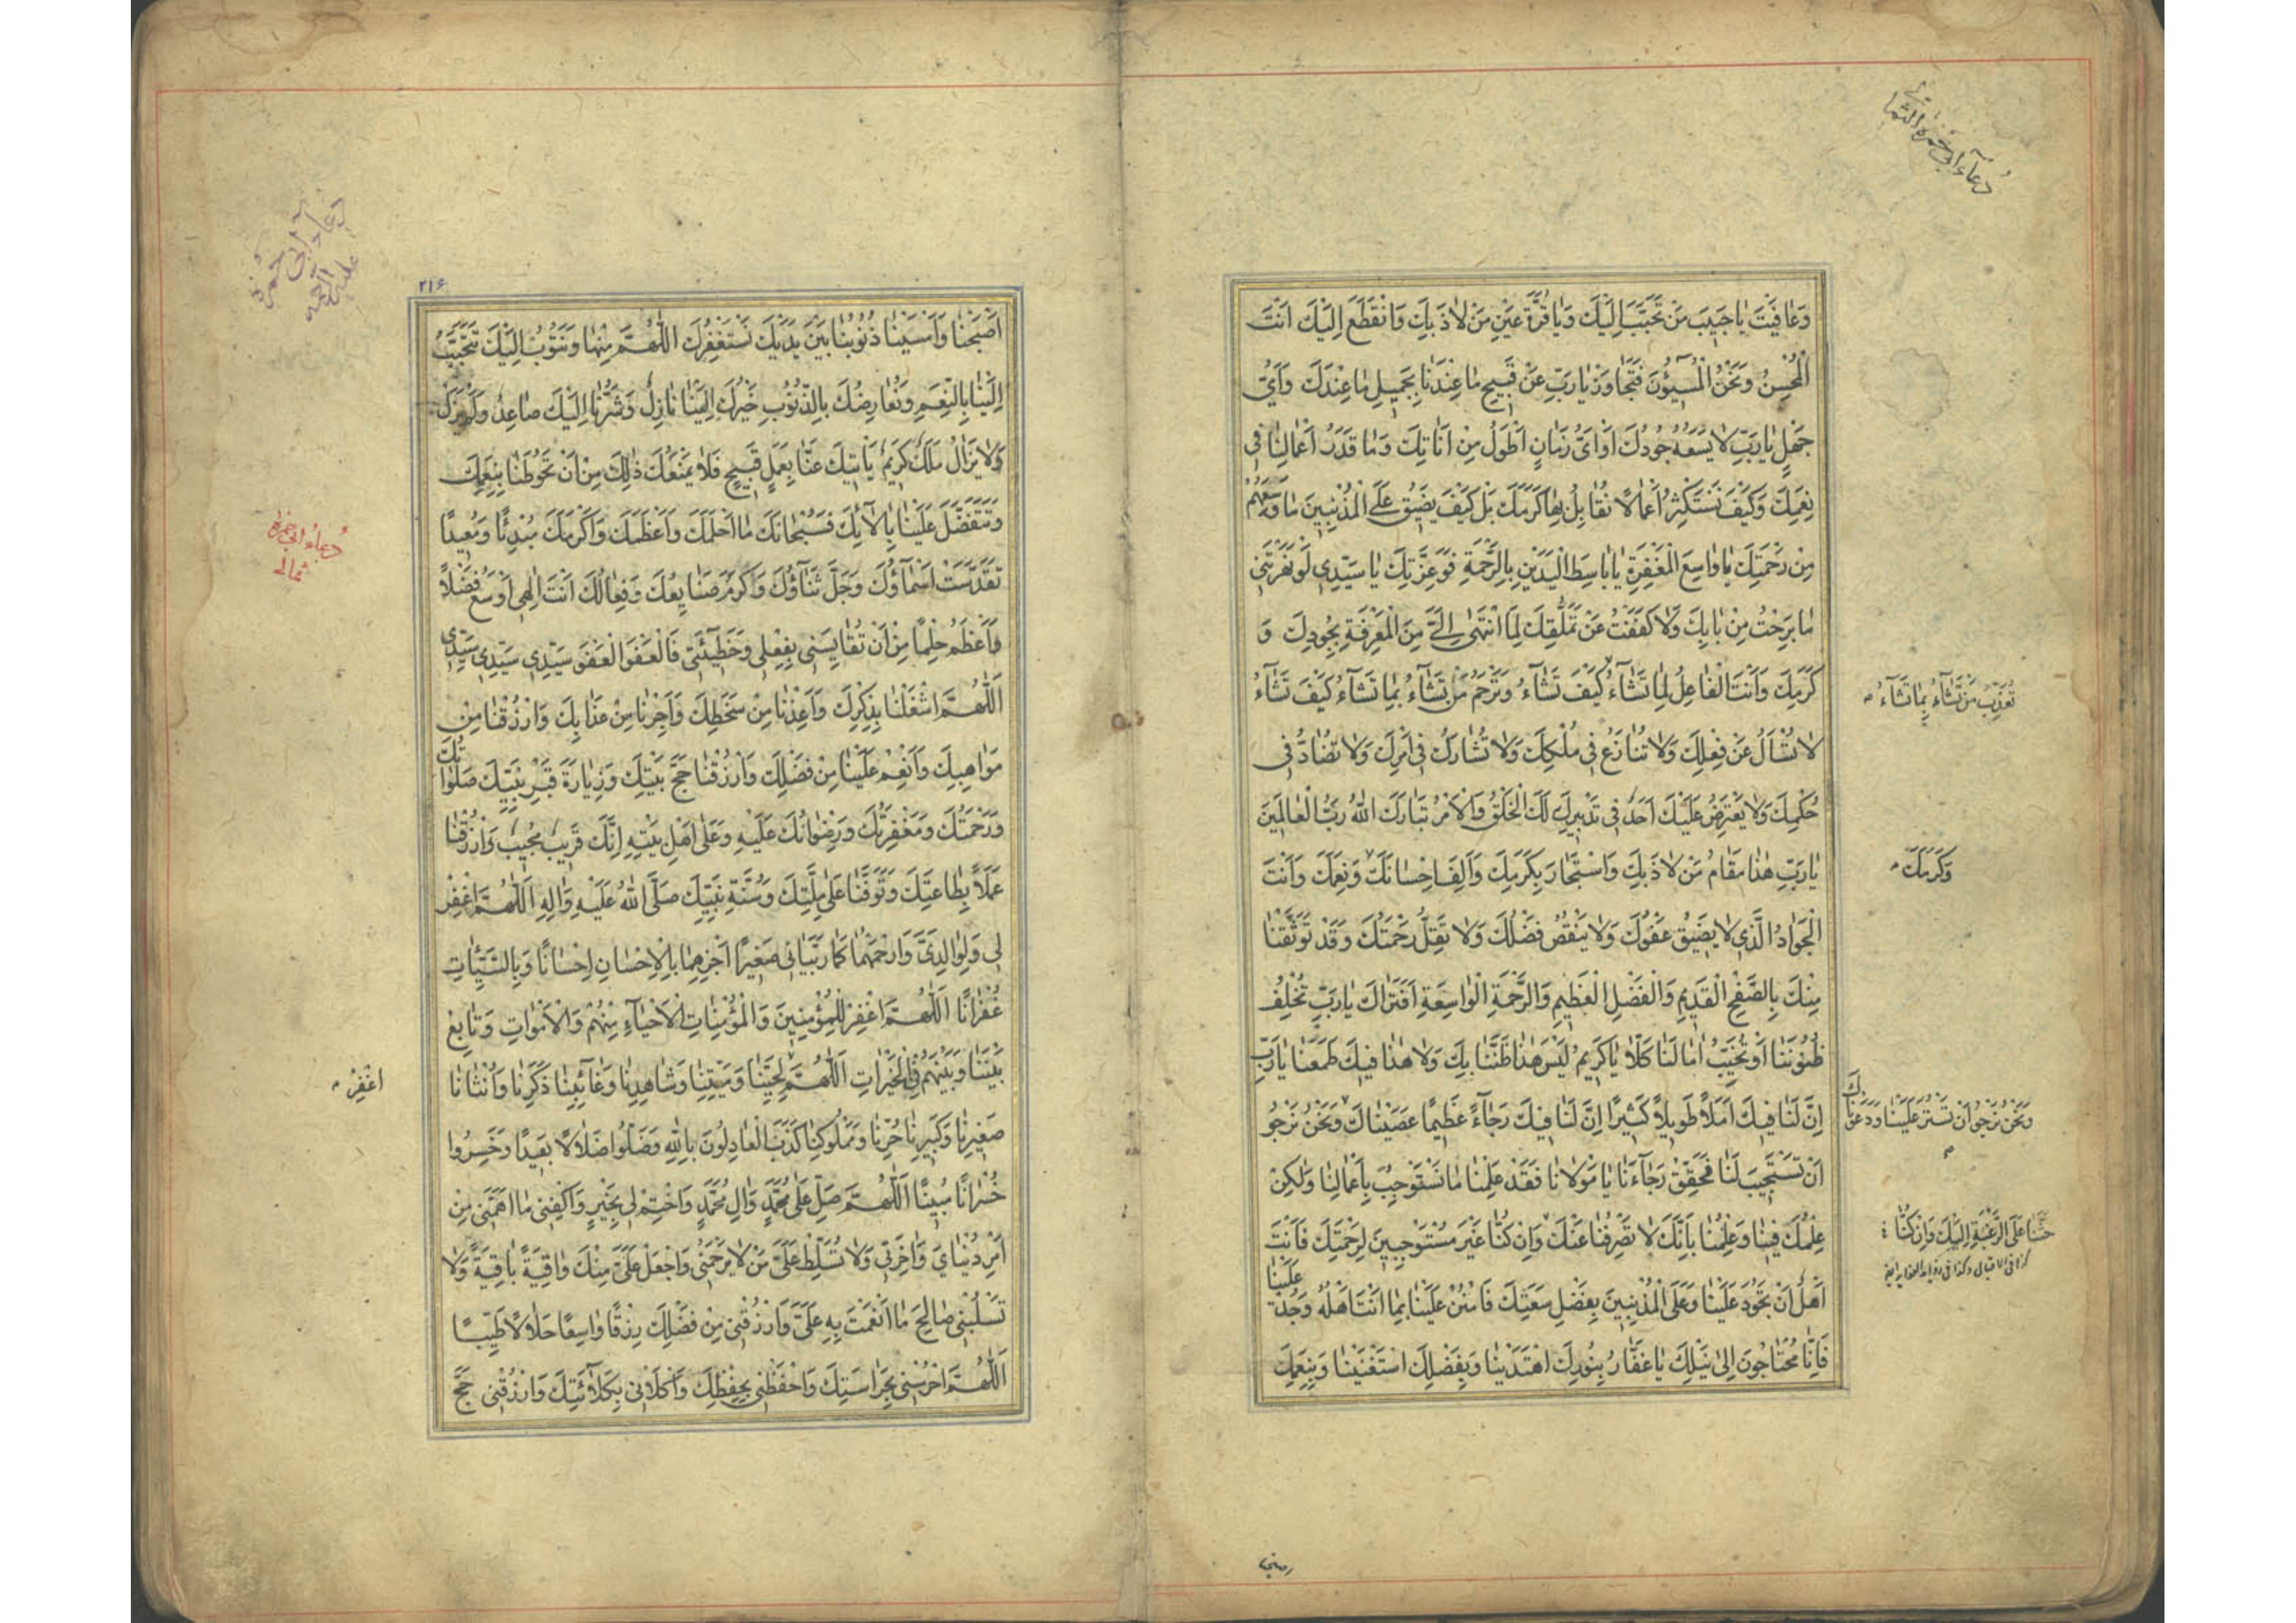 دُعآء ابی حمزة الثمالی
وَعٰافَيْتَ يٰا حَبيبَ مَنْ تَحَبَّبَ اِلَيْكَ وَيٰا قُرَّةَ عَيْنِ مَنْ لاٰذَ بِكَ وَانْقَطَعَ اِلَيْكَ اَنْتَ
الْمُحْسِنُ وَنَحْنُ الْمُسيؤُنَ فَتَجٰاوَزْ يٰا رَبِّ عَنْ قَبيحِ مٰا عِنْدَنٰا بِجَميلِ مٰا عِنْدَكَ وَاَىُّ
جَهْلٍ يٰا رَبِّ لاٰ يَسَعُهُ جُودُكَ اَوْ اَىُّ زَمٰانٍ اَطْوَلُ مِنْ اَنٰاتِكَ وَمٰا قَدْرُ اَعْمٰالِنٰا فى
نِعَمِكَ وَكَيْفَ نَسْتَكْثِرُ اَعْمٰالاً نُقٰابِلُ بِهٰا كَرَمَكَ بَلْ كَيْفَ يَضيقُ عَلَى الْمُذْنِبينَ مٰا وَسِعَهُمْ
مِنْ رَحْمَتِكَ يٰا وٰاسِعَ الْمَغْفِرَةِ يٰا بٰاسِطَ الْيَدَيْنِ بِالرَّحْمَةِ فَوَعِزَّتِكَ يٰا سَيِّدى لَوْ نَهَرْتَنى
مٰا بَرِحْتُ مِنْ بٰابِكَ وَلاٰ كَفَفْتُ عَنْ تَمَلُّقِكَ لِمَا انْتَهٰى اِلَىَّ مِنَ الْمَعْرِفَةِ بِجُودِكَ وَ
كَرَمِكَ وَاَنْتَ الْفٰاعِلُ لِمٰا تَشٰآءُ كَيْفَ تَشٰآءُ وَتَرْحَمُ مَنْ تَشٰآءُ بِمٰا تَشٰآءُ كَيْفَ تَشٰآءُ
تُعَذِّبُ مَنْ تَشٰآءُ بِمٰا تَشٰآءُ
لاٰ تُسْاَلُ عَنْ فِعْلِكَ وَلاٰ تُنٰازَعُ فى مُلْكِكَ وَلاٰ تُشٰارَكُ فى اَمْرِكَ وَلاٰ تُضٰادُّ فى
حُكْمِكَ وَلاٰ يَعْتَرِضُ عَلَيْكَ اَحَدٌ فى تَدْبيرِكَ لَكَ الْخَلْقُ وَالْاَمْرُ تَبٰارَكَ اللّٰهُ رَبُّ الْعٰالَمينَ
يٰا رَبِّ هٰذٰا مَقٰامُ مَنْ لاٰذَ بِكَ وَاسْتَجٰارَ بِكَرَمِكَ وَاَلِفَ اِحْسٰانَكَ وَنِعَمَكَ وَاَنْتَ
وَكَرَمَكَ
الْجَوٰادُ الَّذى لاٰ يَضيقُ عَفْوُكَ وَلاٰ يَنْقُصُ فَضْلُكَ وَلاٰ تَقِلُّ رَحْمَتُكَ وَقَدْ تَوَثَّقْنٰا
مِنْكَ بِالصَّفْحِ الْقَديمِ وَالْفَضْلِ الْعَظيمِ وَالرَّحْمَةِ الْوٰاسِعَةِ اَفَتَرٰاكَ يٰا رَبِّ تُخْلِفُ
ظُنُونَنٰا اَوْ تُخَيِّبُ اٰمٰالَنٰا كَلاّٰ يٰا كَريمُ لَيْسَ هٰذٰا ظَنُّنٰا بِكَ وَلاٰ هٰذٰا فيكَ طَمَعُنٰا يٰا رَبِّ
اِنَّ لَنٰا فيكَ اَمَلاً طَويلاً كَثيرًا اِنَّ لَنٰا فيكَ رَجٰآءً عَظيمًا عَصَيْنٰاكَ وَنَحْنُ نَرْجُو
وَنَحْنُ نَرْجُو اَنْ تَسْتُرَ عَلَيْنٰا وَدَعَوْنٰاكَ
اَنْ تَسْتَجيبَ لَنٰا فَحَقِّقْ رَجٰآءَنٰا يٰا مَوْلاٰنٰا فَقَدْ عَلِمْنٰا مٰا نَسْتَوْجِبُ بِاَعْمٰالِنٰا وَلٰكِنْ
عِلْمُكَ فينٰا وَعِلْمُنٰا بِاَنَّكَ لاٰ تَصْرِفُنٰا عَنْكَ وَاِنْ كُنّٰا غَيْرَ مُسْتَوْجِبينَ لِرَحْمَتِكَ فَاَنْتَ
حَثَّنٰا عَلَى الرَّغْبَةِ اِلَيْكَ وَاِنْ كُنّٰا
اَهْلٌ اَنْ تَجُودَ عَلَيْنٰا وَعَلَى الْمُذْنِبينَ بِفَضْلِ سَعَتِكَ فَامْنُنْ عَلَيْنٰا بِمٰا اَنْتَ اَهْلُهُ وَجُدْ عَلَيْنٰا
فَاِنّٰا مُحْتٰاجُونَ اِلٰى نَيْلِكَ يٰا غَفّٰارُ بِنُورِكَ اهْتَدَيْنٰا وَبِفَضْلِكَ اسْتَغْنَيْنٰا وَبِنِعْمَتِكَ
اصبحنا
دعاء ابی حمزة
علیه الرحمه
۲۱۶
دُعاء ابی حمزه
ثمالی
اَصْبَحْنٰا وَاَمْسَيْنٰا ذُنُوبُنٰا بَيْنَ يَدَيْكَ نَسْتَغْفِرُكَ اللّٰهُمَّ مِنْهٰا وَنَتُوبُ اِلَيْكَ تَتَحَبَّبُ
اِلَيْنٰا بِالنِّعَمِ وَنُعٰارِضُكَ بِالذُّنُوبِ خَيْرُكَ اِلَيْنٰا نٰازِلٌ وَشَرُّنٰا اِلَيْكَ صٰاعِدٌ وَلَمْ يَزَلْ
وَلاٰ يَزٰالُ مَلَكٌ كَريمٌ يَاْتيكَ عَنّٰا بِعَمَلٍ قَبيحٍ فَلاٰ يَمْنَعُكَ ذٰلِكَ مِنْ اَنْ تَحُوطَنٰا بِنِعَمِكَ
وَتَتَفَضَّلَ عَلَيْنٰا بِاٰلآئِكَ فَسُبْحٰانَكَ مٰا اَحْلَمَكَ وَاَعْظَمَكَ وَاَكْرَمَكَ مُبْدِئًا وَمُعيدًا
تَقَدَّسَتْ اَسْمٰآؤُكَ وَجَلَّ ثَنٰآؤُكَ وَكَرُمَ صَنٰايِعُكَ وَفِعٰالُكَ اَنْتَ اِلٰهى اَوْسَعُ فَضْلاً
وَاَعْظَمُ حِلْمًا مِنْ اَنْ تُقٰايِسَنى بِفِعْلى وَخَطيٓئَتى فَالْعَفْوَ الْعَفْوَ سَيِّدى سَيِّدى سَيِّدى
اَللّٰهُمَّ اشْغَلْنٰا بِذِكْرِكَ وَاَعِذْنٰا مِنْ سَخَطِكَ وَاَجِرْنٰا مِنْ عَذٰابِكَ وَارْزُقْنٰا مِنْ
مَوٰاهِبِكَ وَاَنْعِمْ عَلَيْنٰا مِنْ فَضْلِكَ وَارْزُقْنٰا حَجَّ بَيْتِكَ وَزِيٰارَةَ قَبْرِ نَبِيِّكَ صَلَوٰاتُكَ
وَرَحْمَتُكَ وَمَغْفِرَتُكَ وَرِضْوٰانُكَ عَلَيْهِ وَعَلٰى اَهْلِ بَيْتِهِ اِنَّكَ قَريبٌ مُجيبٌ وَارْزُقْنٰا
عَمَلاً بِطٰاعَتِكَ وَتَوَفَّنٰا عَلٰى مِلَّتِكَ وَسُنَّةِ نَبِيِّكَ صَلَّى اللّٰهُ عَلَيْهِ وَاٰلِهِ اَللّٰهُمَّ اغْفِرْ
لى وَلِوٰالِدَىَّ وَارْحَمْهُمٰا كَمٰا رَبَّيٰانى صَغيرًا اَجْزِهِمٰا بِالْاِحْسٰانِ اِحْسٰانًا وَبِالسَّيِّئٰاتِ
غُفْرٰانًا اَللّٰهُمَّ اغْفِرْ لِلْمُؤْمِنينَ وَالْمُؤْمِنٰاتِ الْاَحْيٰآءِ مِنْهُمْ وَالْاَمْوٰاتِ وَتٰابِعْ
بَيْنَنٰا وَبَيْنَهُمْ فِى الْخَيْرٰاتِ اَللّٰهُمَّ لِحَيِّنٰا وَمَيِّتِنٰا وَشٰاهِدِنٰا وَغٰآئِبِنٰا ذَكَرِنٰا وَاُنْثٰانٰا
اغْفِرْ
صَغيرِنٰا وَكَبيرِنٰا حُرِّنٰا وَمَمْلُوكِنٰا كَذَبَ الْعٰادِلُونَ بِاللّٰهِ وَضَلُّوا ضَلاٰلاً بَعيدًا وَخَسِرُوا
خُسْرٰانًا مُبينًا اَللّٰهُمَّ صَلِّ عَلٰى مُحَمَّدٍ وَاٰلِ مُحَمَّدٍ وَاخْتِمْ لى بِخَيْرٍ وَاكْفِنى مٰا اَهَمَّنى مِنْ
اَمْرِ دُنْيٰاىَ وَاٰخِرَتى وَلاٰ تُسَلِّطْ عَلَىَّ مَنْ لاٰ يَرْحَمُنى وَاجْعَلْ عَلَىَّ مِنْكَ وٰاقِيَةً بٰاقِيَةً وَلاٰ
تَسْلُبْنى صٰالِحَ مٰا اَنْعَمْتَ بِهِ عَلَىَّ وَارْزُقْنى مِنْ فَضْلِكَ رِزْقًا وٰاسِعًا حَلاٰلاً طَيِّبًا
اَللّٰهُمَّ احْرُسْنى بِحَرٰاسَتِكَ وَاحْفَظْنى بِحِفْظِكَ وَاكْلَاْنى بِكَلاٰئَتِكَ وَارْزُقْنى حَجَّ